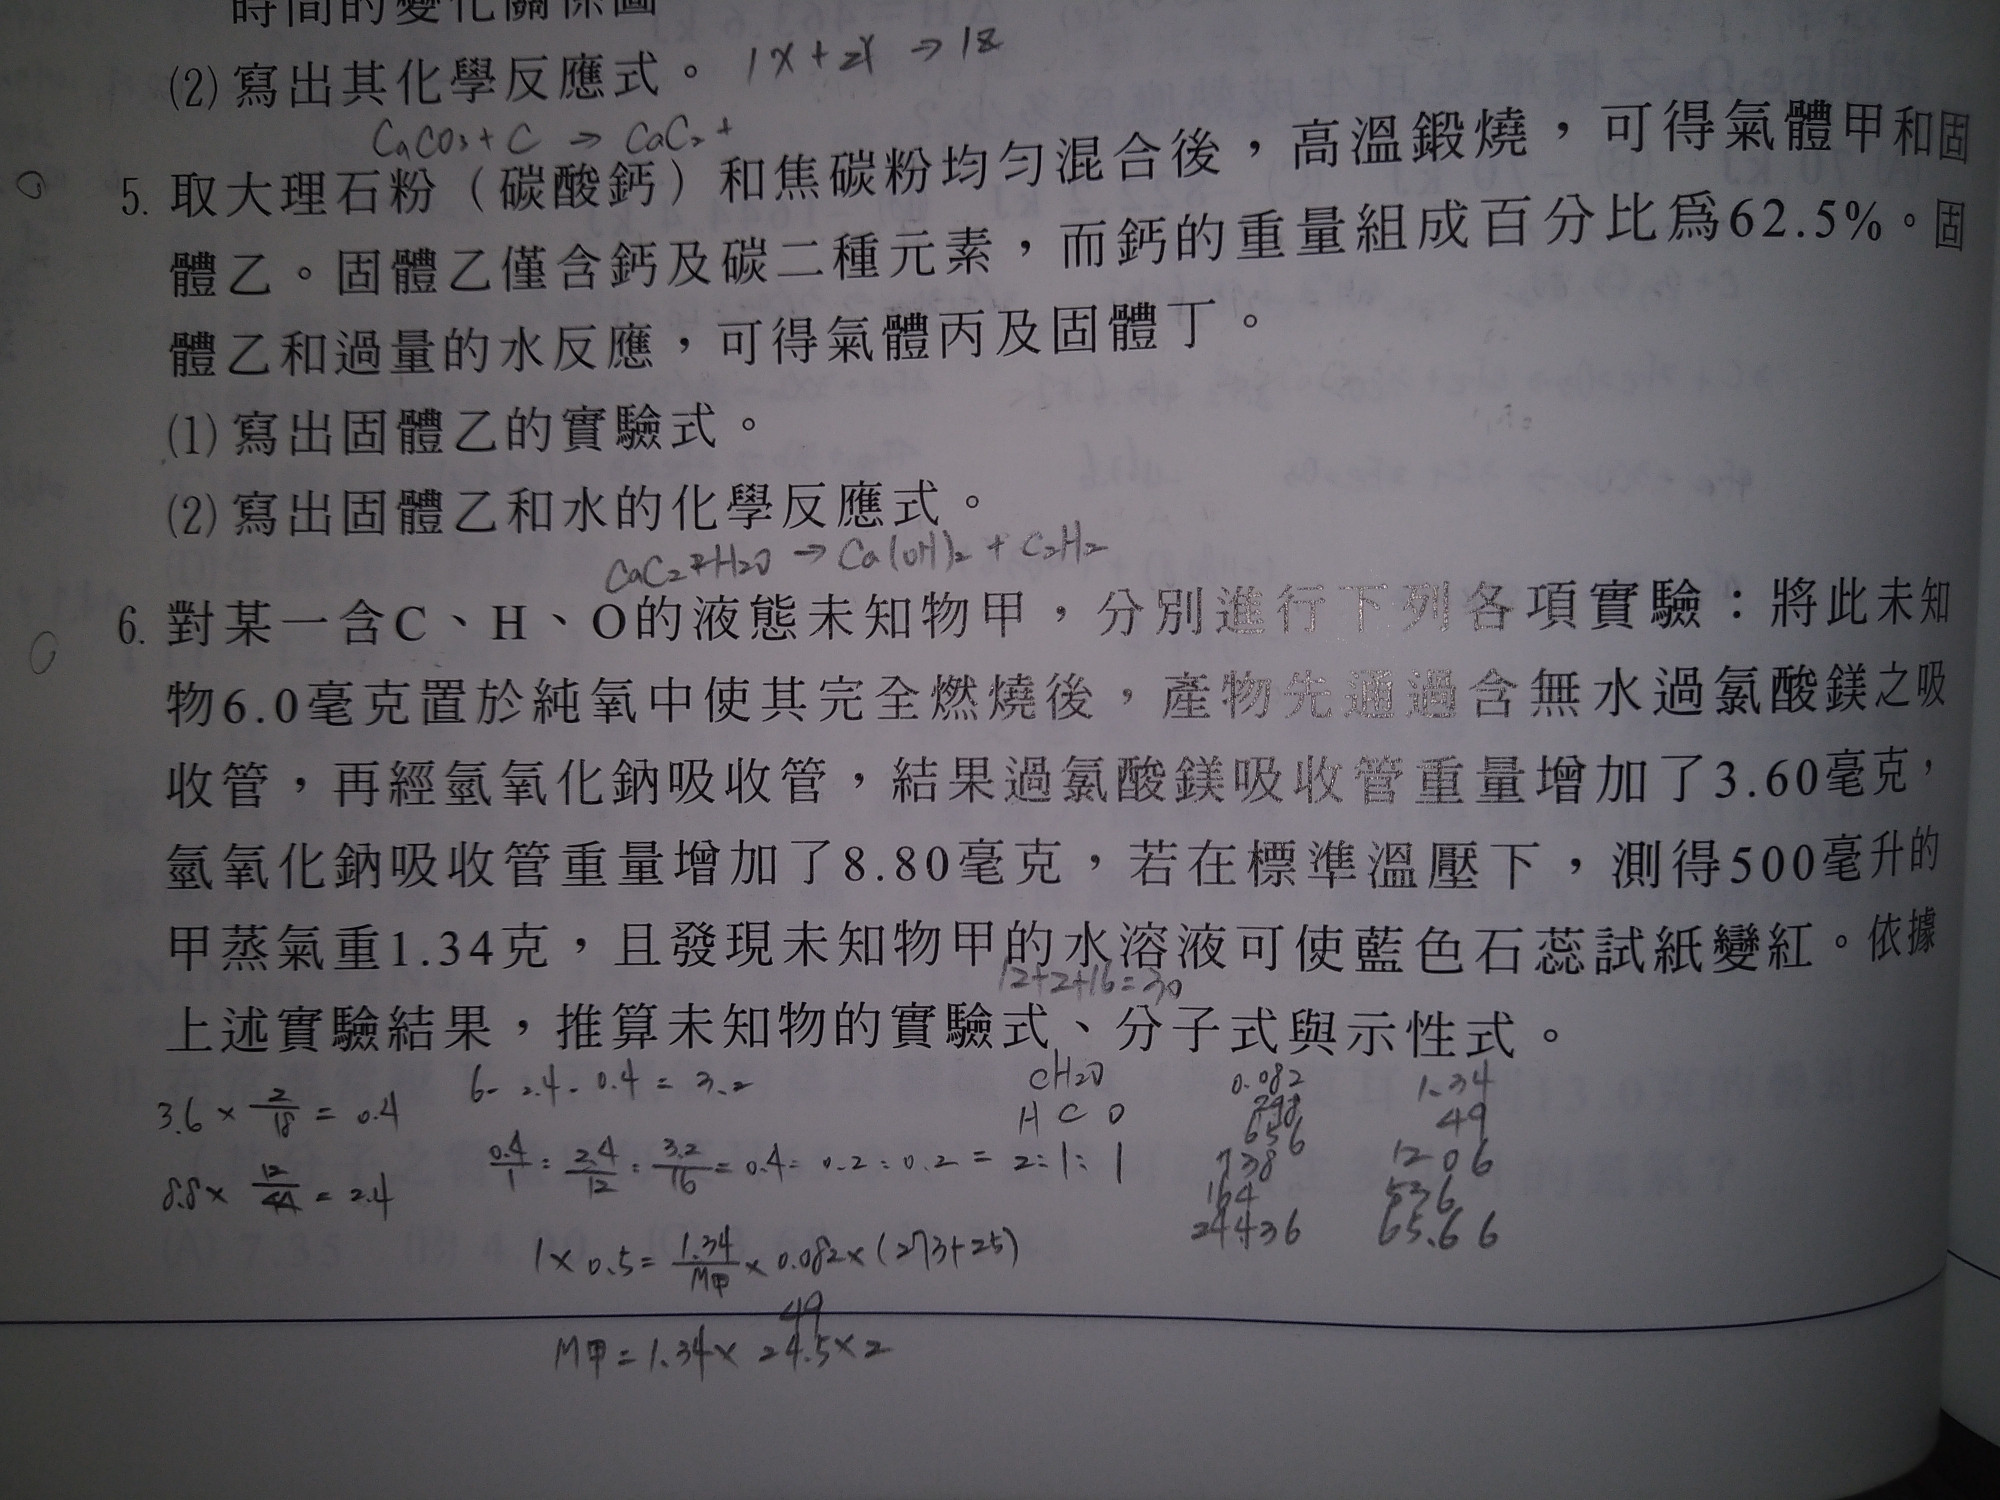 時間的變化關係圖
(2)寫出其化學反應式。 1X+2Y→1Z
CaCO3+C→CaC2+
5. 取大理石粉（碳酸鈣）和焦碳粉均勻混合後，高溫鍛燒，可得氣體甲和固
體乙。固體乙僅含鈣及碳二種元素，而鈣的重量組成百分比爲62.5%。固
體乙和過量的水反應，可得氣體丙及固體丁。
(1)寫出固體乙的實驗式。
(2)寫出固體乙和水的化學反應式。
CaC2+H2O→Ca(OH)2+C2H2
6. 對某一含C、H、O的液態未知物甲，分別進行下列各項實驗：將此未知
物6.0毫克置於純氧中使其完全燃燒後，產物先通過含無水過氯酸鎂之吸
收管，再經氫氧化鈉吸收管，結果過氯酸鎂吸收管重量增加了3.60毫克，
氫氧化鈉吸收管重量增加了8.80毫克，若在標準溫壓下，測得500毫升的
甲蒸氣重1.34克，且發現未知物甲的水溶液可使藍色石蕊試紙變紅。依據
12+2+16=30
上述實驗結果，推算未知物的實驗式、分子式與示性式。
3.6×2/18=0.4 6-2.4-0.4=3.2 CH2O 0.082 1.34
H C O 298 49
8.8×12/44=2.4 0.4/1:2.4/12:3.2/16=0.4:0.2:0.2=2:1:1 656 1206
738 536
164 65.66
24436
1×0.5=1.34/M甲×0.082×(273+25)
49
M甲=1.34×24.5×2